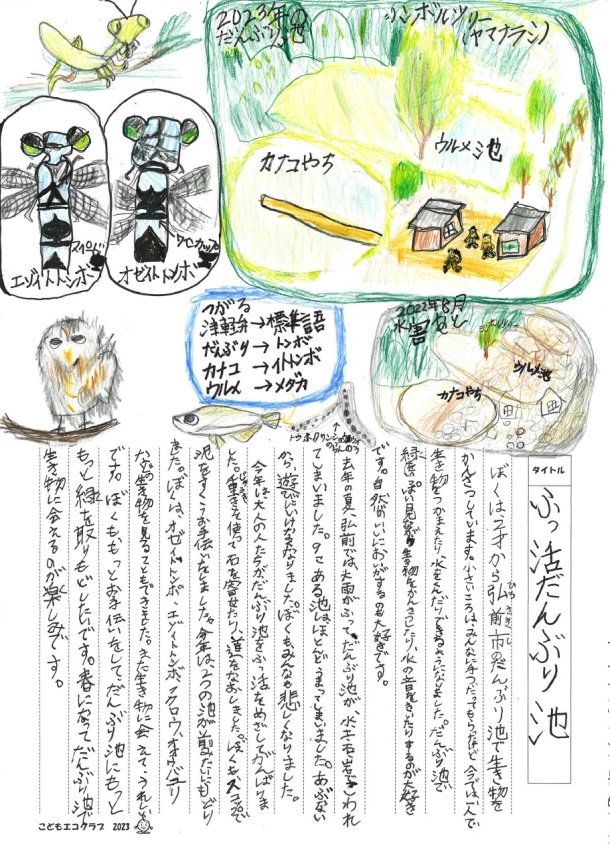 2023年の
だんぶり池
シンボルツリー
(ヤマナラシ)
ウルメ池
カナコやち
スペード
エゾイトトンボ
ワイングラス
オゼイトトンボ
つがる
津軽弁→標準語
だんぶり→トンボ
カナコ→イトトンボ
ウルメ→メダカ
2022年8月
水害あと
シンボルツリー
ウルメ池
カナコやち
トウホクサンショウウオ
のらんのう
タイトル
ふっ活だんぶり池
ぼくは2才から弘前市のだんぶり池で生き物を
ひろさきし
かんさつしています。小さいころは、みんなに手つだってもらったけど、今では一人で
生き物をつかまえたり、水をくんだりできるようになりました。だんぶり池で
緑をいっぱい見ながら生き物をかんさつしたり、水の音をきいたりするのが大好き
です。自然のいいにおいがするのも大好きです。
去年の夏、弘前では、大雨がふって、だんぶり池が水や土や石や岩でこわれ
てしまいました。9こある池はほとんどうまってしまいました。あぶない
から、遊びにいけなくなりました。ぼくもみんなも悲しくなりました。
今年は大人の人たちがだんぶり池をふっ活をめざしてがんばりまし
た。重きを使って石を寄せたり、道をなおしました。ぼくも、スコップで
泥をすくうお手伝いをしました。今年は、2つの池が前みたいにもどり
ました。ぼくは、オゼイトトンボ、エゾイトトンボ、フクロウ、オオカマキリ
など生き物を見ることもできました。また生き物に会えて、うれしい
です。ぼくも、もっとお手伝いをして、だんぶり池にもっと
もっと緑を取りもどしたいです。春になってだんぶり池で
生き物に会えるのが楽しみです。
こどもエコクラブ 2023